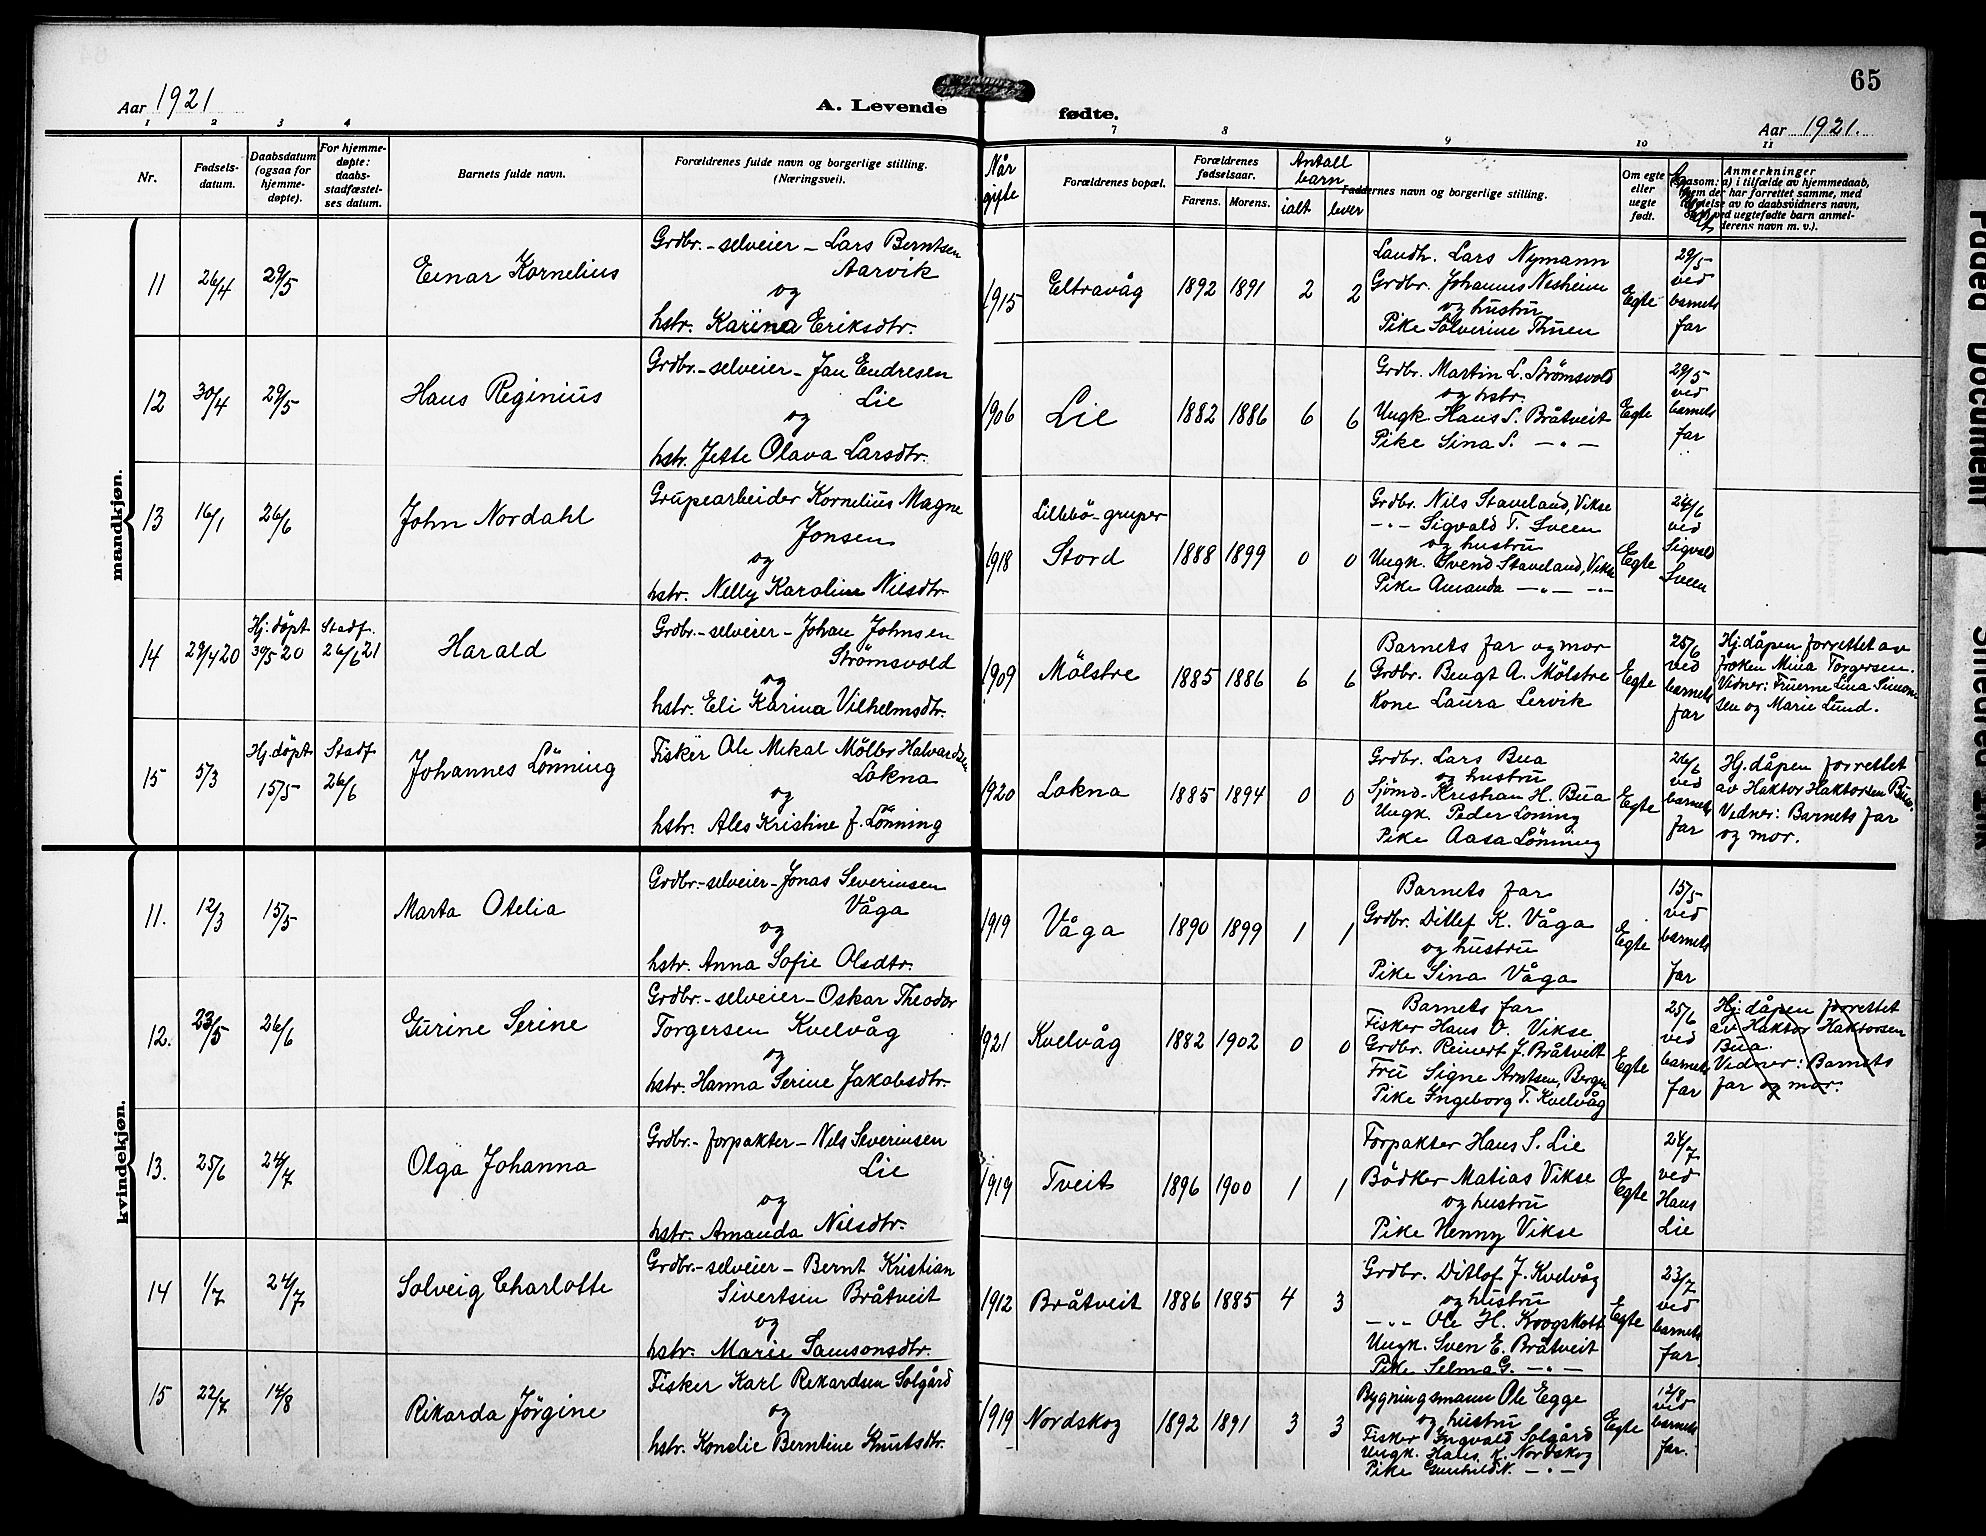 65
Aar 1921
A. Levende
fødte.
Aar 1921.
1 2 3 4 7 8 9 10 11
Nr.
Fødsels-
datum.
Daabsdatum
(ogsaa for
hjemme-
døpte).
For hjemme-
døpte:
daabs-
stadfæstel-
ses datum.
Barnets fulde navn.
Forældrenes fulde navn og borgerlige stilling.
(Næringsvei).
Når
gifte
Forældrenes bopæl.
Forældrenes
fødselsaar.
Farens. Morens.
Antall
barn
ialt lever
Faddernes navn og borgerlige stilling.
Om egte
eller
uegte
født.
Anmerkninger
mandkjøn.
11 26/4 29/5
Einar Kornelius
Grdbr.-selveier- Lars Berntsen
Aarvik
og
hstr. Karina Eriksdtr.
1915 Eltravåg 1892 1891 2 2
Landh. Lars Nymann
Grdbr. Johannes Nesheim
og hustru
Pike Sølverine Thuen
Egte
29/5
ved
barnets
far
12 30/4 29/5
Hans Reginius
Grdbr.-selveier- Jan Endresen
Lie
og
hstr. Jette Olava Larsdtr.
1906 Lie 1882 1886 6 6
Grdbr. Martin L. Strømsvold
og hstr.
Ungk. Hans S. Bråtveit
Pike Sina S. -"-
Egte
29/5
ved
barnets
far
13 16/1 26/6
John Nordahl
Grupearbeider Kornelius Magne
Jonsen
og
hstr. Nelly Karoline Nilsdtr.
1918 Lillebö-gruper
Stord 1888 1899 0 0
Grdbr. Nils Staveland, Vikse
-"- Sigvald T. Sveen
og hustru
Ungk. Svend Staveland, Vikse
Pike Amanda -"- -"-
Egte
24/6
ved
Sigvald
Sveen
14 29/4 20 Hj. döpt 30/5 20 Stadf. 26/6 21
Harald
Grdbr.-selveier- Johan Johnsen
Strömsvold
og
hstr. Eli Karina Vilhelmsdtr.
1909 Mölstre 1885 1886 6 6
Barnets far og mor
Grdbr. Bengt A. Mölstre
Kone Laura Lervik
Egte
25/6
ved
barnets
far
Hj. dåpen forrettet av
frøken Mina Torgersen.
Vidner: Fruerne Lina Simon-
sen og Marie Lund.
15 5/3 Hj. döpt 15/5 Stadf 26/6
Johannes Lönning
Fisker Ole Mikal Möller Halvardsen
Lokna
og
hstr. Ales Kristine J. Lönning
1920 Lokna 1885 1894 0 0
Grdbr. Lars Bua
og hustru
Sjömd. Kristian H. Bua
Ungk. Peder Loning
Pike Aasa Lönning
Egte
26/6
ved
barnets
far
Hj. dåpen forrettet
av Haktor Haktorsen Bua.
Vidner: Barnets far
og mor.
kvindekjøn.
11. 12/3 15/5
Marta Otelia
Grdbr.-selveier- Jonas Severinsen
Våga
og
hstr. Anna Sofie Olsdtr.
1919 Våga 1890 1899 1 1
Barnets far
Grdbr. Ditlef K. Våga
og hustru
Pike Sina Våga
Egte
15/5
ved
barnets
far
12. 23/5 26/6
Gurine Serine
Grdbr.-selveier- Oskar Theodor
Torgersen Kvelvåg
og
hstr. Hanna Serine Jakobsdtr.
1921 Kvelvåg 1882 1902 0 0
Barnets far
Fisker Hans O. Vikse
Grdbr. Reinert J. Bråtveit
Fru Signe Arntsen, Bergen
Pike Ingeborg T. Kvelvåg
Egte
25/6
ved
barnets
far
Hj. dåpen forrettet
av Haktor Haktorsen
Bua.
Vidner: Barnets
far og mor.
13. 25/6 24/7
Olga Johanna
Grdbr.-forpakter- Nils Severinsen
Lie
og
hstr. Amanda Nilsdtr.
1919 Tveit 1896 1900 1 1
Forpakter Hans S. Lie
Bödker Matias Vikse
og hustru
Pike Henny Vikse
Egte
24/7
ved
Hans
Lie
14 1/7 24/7
Solveig Charlotte
Grdbr.-selveier- Bernt Kristian
Sivertsen Bråtveit
og
hstr. Marie Samsonsdtr.
1912 Bråtveit 1886 1885 4 3
Grdbr. Ditlof J. Kvelvåg
og hustru
-"- Ole H.
Ungk. Sven E. Bråtveit
Pike Selma G. -"-
Egte
23/7
ved
barnets
far.
15 22/7 14/8
Rikarda Jörgine
Fisker Karl Rikardsen Solgård
og
hstr. Konelie Berntine Knutsdtr.
1919 Nordskog 1892 1891 3 3
Bygningsmann Ole Egge
og hustru
Fisker Ingvald Solgård
Ungk. Hans K. Nordskog
Pike Gunhild N. -"-
Egte
12/8
ved
barnets
far.
Faded Document